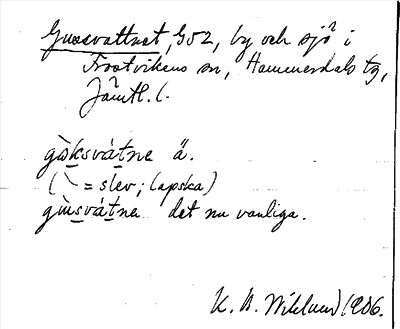 Gussvattnet, G52, by och sjö i
Frostvikens sn, Hammerdals tg,
Jämtl. l.
gùksvátne ä.
(\ = slev; lapska)
gùusvátne det nu vanliga.
K. B. Wiklund 1906.